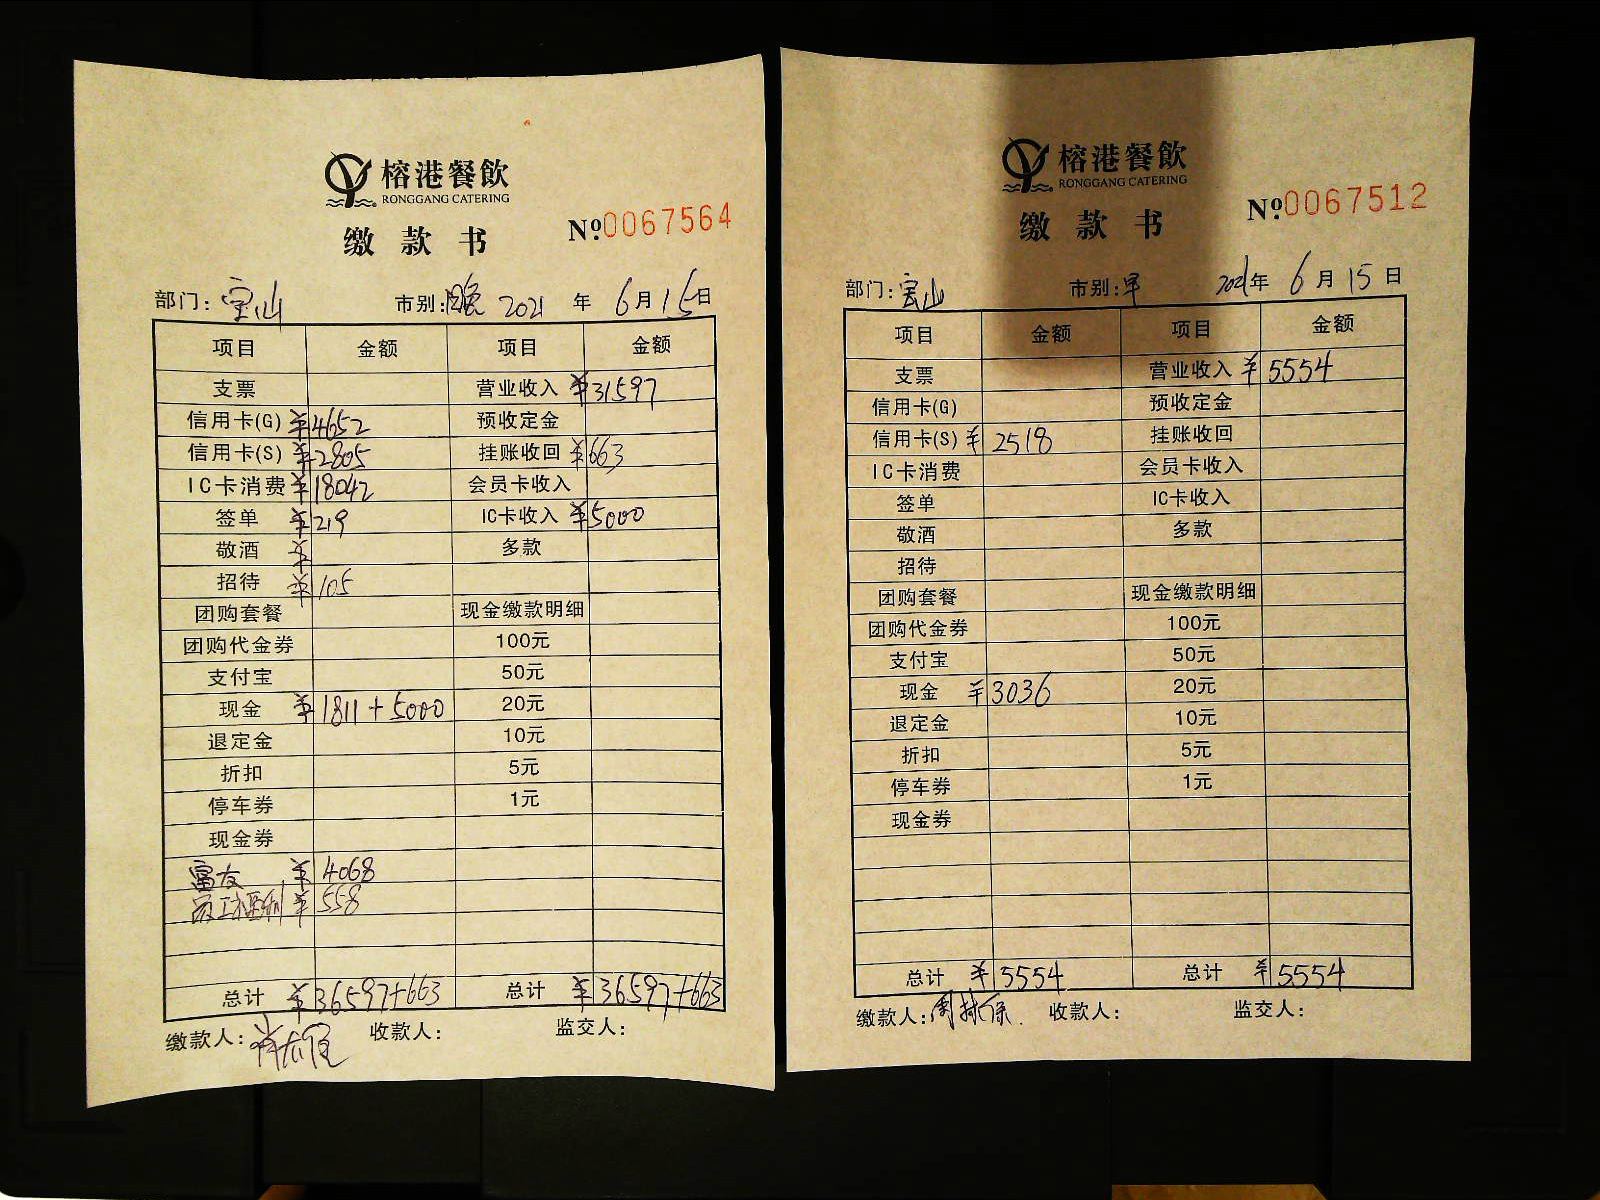 榕港餐飲
RONGGANG CATERING
缴款书
№0067564
部门: 宝山 市别: 晚 2021 年 6月15日
项目 金额 项目 金额
支票 营业收入 ¥31597
信用卡(G) ¥4652 预收定金
信用卡(S) ¥2805 挂账收回 ¥663
IC卡消费 ¥18042 会员卡收入
签单 ¥219 IC卡收入 ¥5000
敬酒 ¥ 多款
招待 ¥105
团购套餐 现金缴款明细
团购代金券 100元
支付宝 50元
现金 ¥1811+5000 20元
退定金 10元
折扣 5元
停车券 1元
现金券
富友 ¥4068
员工福利 ¥558
总计 ¥36597+663 总计 ¥36597+663
缴款人: 收款人: 监交人:
榕港餐飲
RONGGANG CATERING
缴款书
№0067512
部门: 宝山 市别: 早 2021年 6月15日
项目 金额 项目 金额
支票 营业收入 ¥5554
信用卡(G) 预收定金
信用卡(S) ¥2518 挂账收回
IC卡消费 会员卡收入
签单 IC卡收入
敬酒 多款
招待
团购套餐 现金缴款明细
团购代金券 100元
支付宝 50元
现金 ¥3036 20元
退定金 10元
折扣 5元
停车券 1元
现金券
总计 ¥5554 总计 ¥5554
缴款人: 收款人: 监交人: